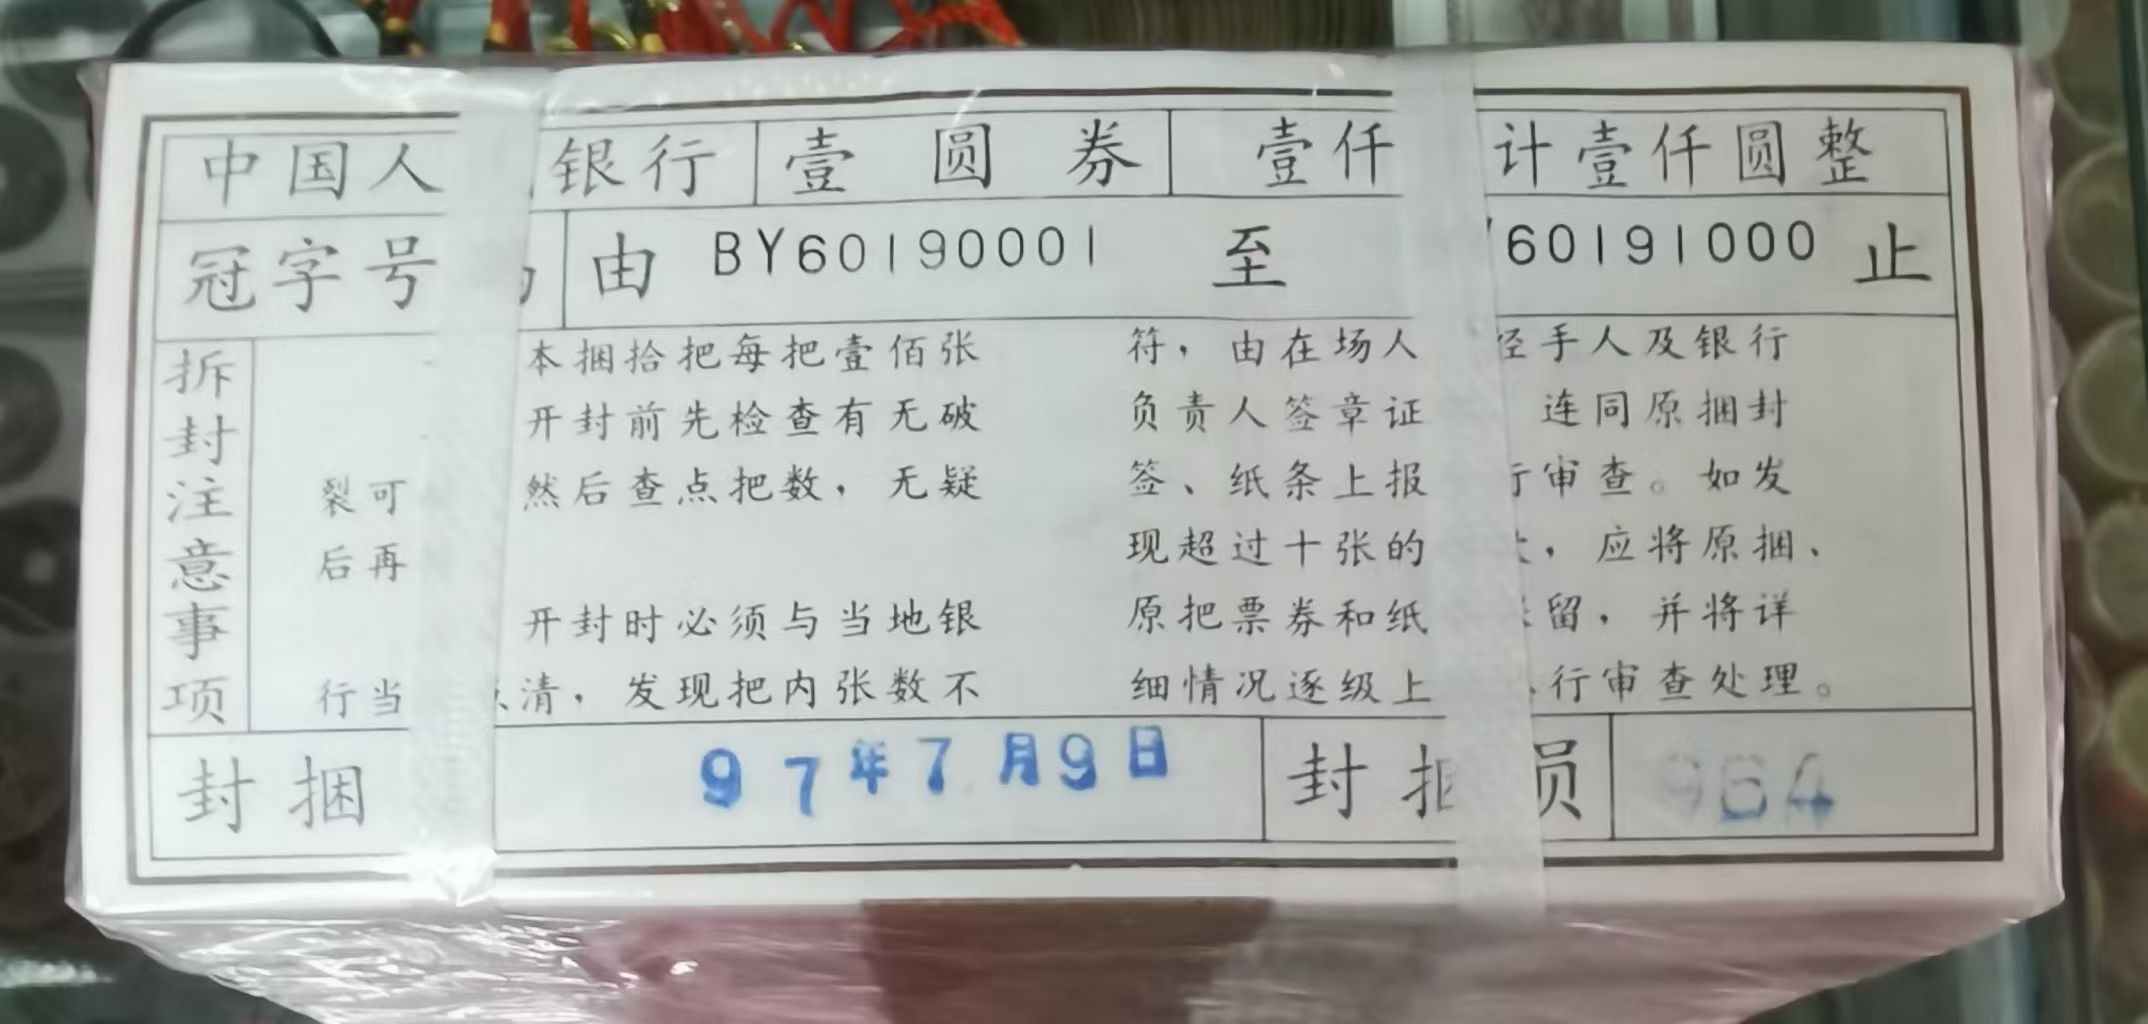 中国人 银行 壹圆券 壹仟 计壹仟圆整
冠字号 由 BY60190001 至 60191000 止
拆封注意事项
本捆拾把每把壹佰张
开封前先检查有无破
裂可 然后查点把数，无疑
后再
开封时必须与当地银
行当 清，发现把内张数不
符，由在场人 经手人及银行
负责人签章证 连同原捆封
签、纸条上报 行审查。如发
现超过十张的 ，应将原捆、
原把票券和纸 留，并将详
细情况逐级上 行审查处理。
封捆 97年7月9日 封捆员 964